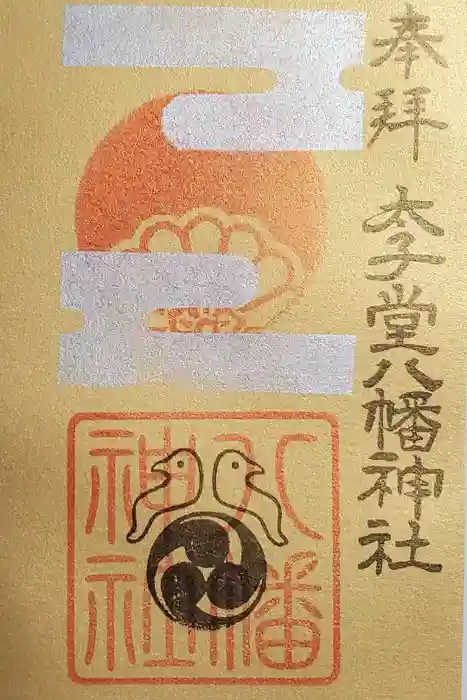 奉拝
太子堂八幡神社
八幡
神社